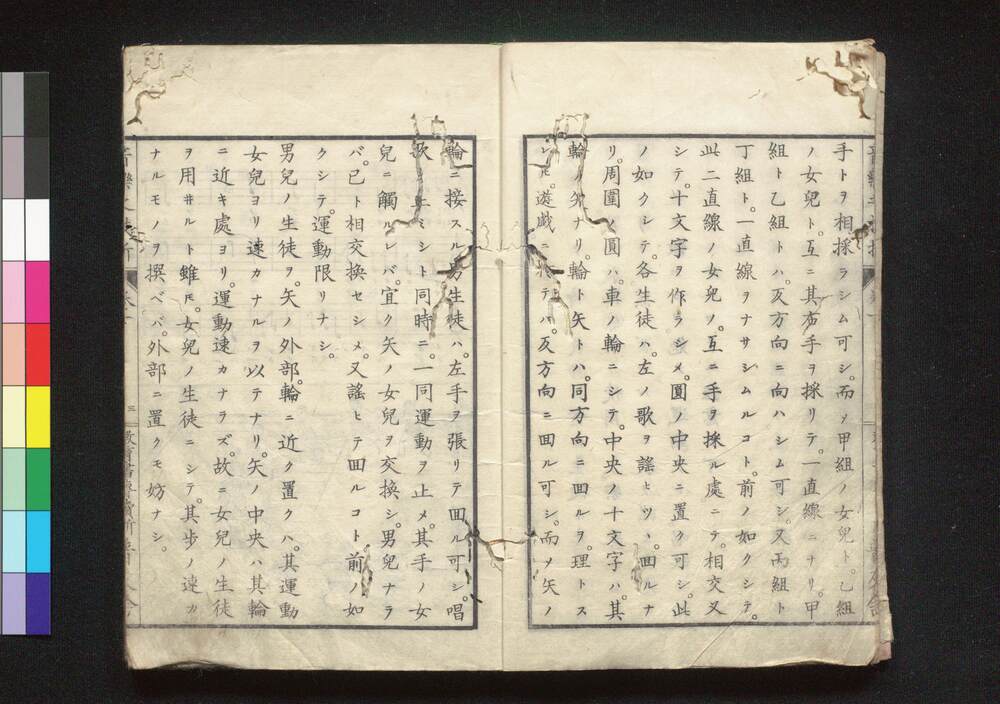 手トヲ相採ラシム可シ。而〆甲組ノ女兒ト。乙組
ノ女兒ト。互ニ其右手ヲ採リテ。一直線ニナリ。甲
組ト乙組トハ。反方向ニ向ハシム可シ。又丙組ト
丁組ト。一直線ヲナサシムルコト。前ノ如クシテ。
此二直線ノ女兒ノ。互ニ手ヲ採ル處ニテ。相交叉
シテ。十文字ヲ作ラシメ。圓ノ中央ニ置ク可シ。此
ノ如クシテ。各生徒ハ。左ノ歌ヲ謡ヒツヽ。回ルナ
リ。周圍ノ圓ハ。車ノ輪ニシテ。中央ノ十文字ハ。其
輪ノ矢ナリ。輪ト矢トハ。同方向ニ回ルヲ。理トス
レ𪜈。遊戯ニ於テハ。反方向ニ回ル可シ。而〆矢ノ
輪ニ接スル男生徒ハ。左手ヲ張リテ回ル可シ。唱
歌止ミシト同時ニ。一同運動ヲ止メ。其手ノ女
兒ニ觸ルレバ。宜ク矢ノ女兒ヲ交換シ。男兒ナラ
バ。已ト相交換セシメ。又謡ヒテ回ルコト前ノ如
クシテ。運動限リナシ。
男兒ノ生徒ヲ。矢ノ外部。輪ニ近ク置クハ。其運動
女兒ヨリ速カナルヲ以テナリ。矢ノ中央ハ其輪
ニ近キ處ヨリ。運動速カナラズ。故ニ女兒ノ生徒
ヲ用ヰルト雖𪜈。女兒ノ生徒ニシテ。其歩ノ速カ
ナルモノヲ撰ベバ。外部ニ置クモ妨ナシ。
三